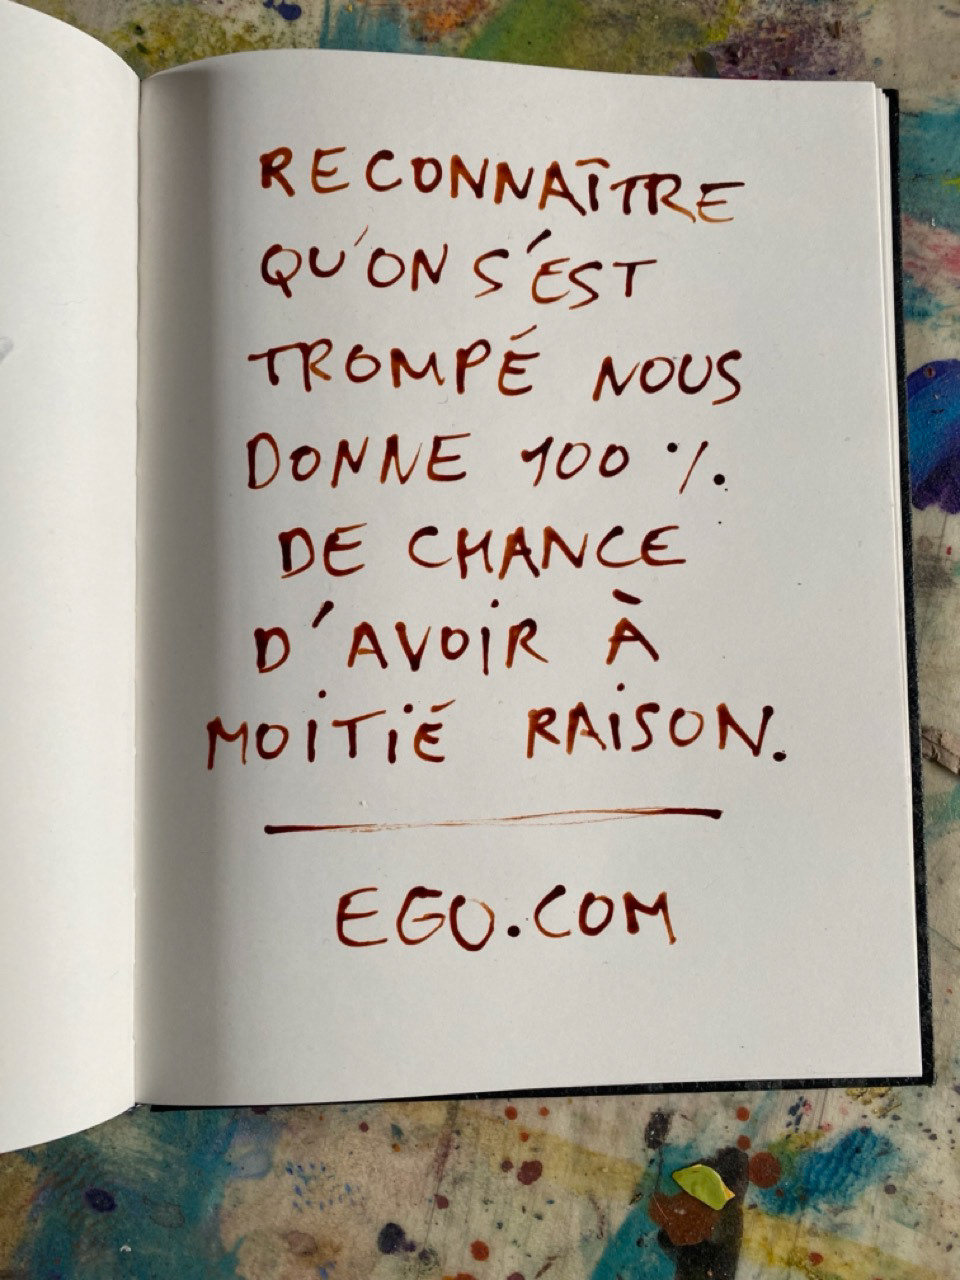 RECONNAÎTRE
QU'ON S'EST
TROMPÉ NOUS
DONNE 100 %.
DE CHANCE
D'AVOIR À
MOITIÉ RAISON.
EGO.COM